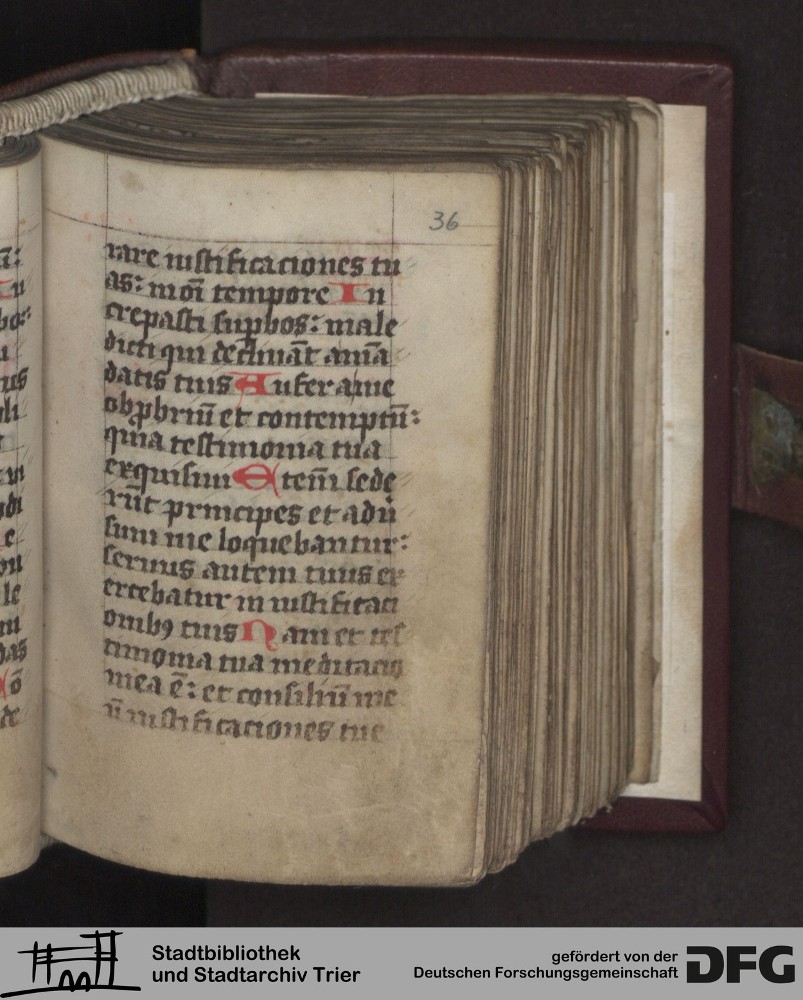 36
rare iustificaciones tu
as: in oī tempore In
crepasti supbos: male
dicti qui declināt a mā
datis tuis Aufer a me
obꝓbriū et contemptū:
quia testimonia tua
exquisiui Etenī sede
rūt principes et adū
sum me loquebantur:
seruus autem tuus ex
ercebatur in iustificaci
onibꝰ tuis Nam et tes
timonia tua meditacio
mea ē: et consiliū me
ū iustificaciones tue
Stadtbibliothek
und Stadtarchiv Trier
gefördert von der
Deutschen Forschungsgemeinschaft
DFG